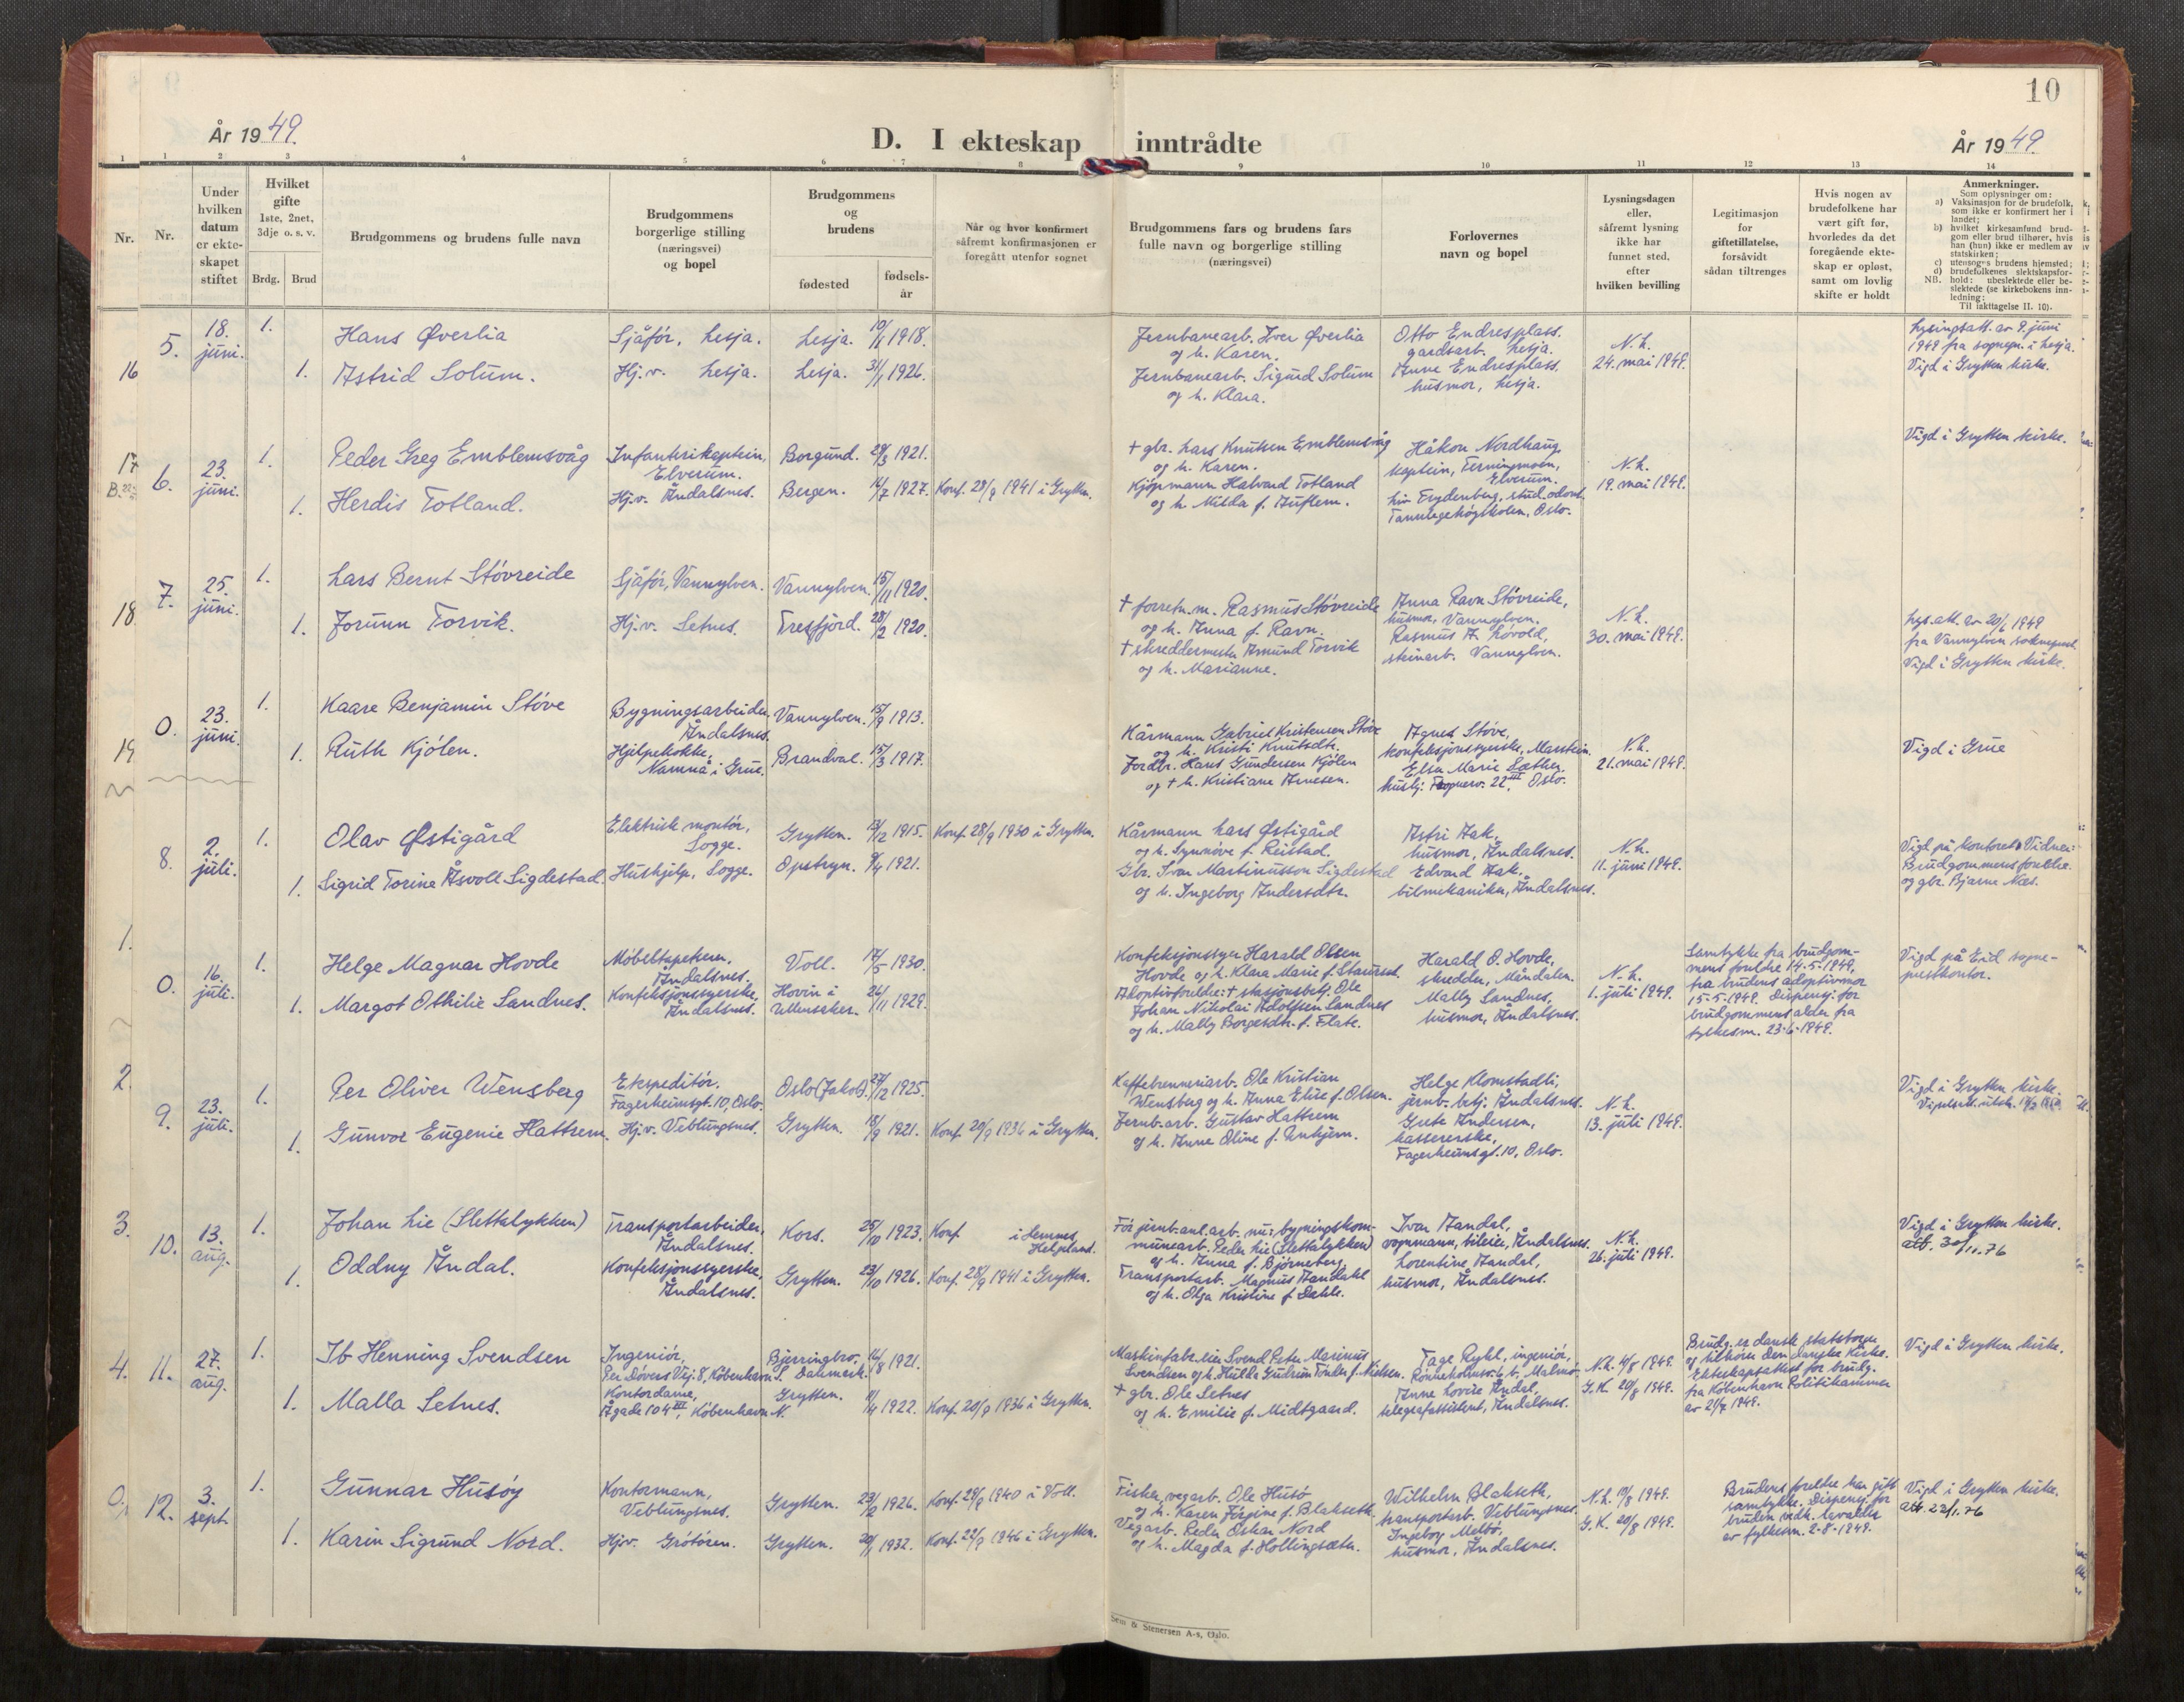 10
År 1949.
D. I ekteskap inntrådte
År 1949.
1 1 2 3 4 5 6 7 8 9 10 11 12 13 14
Nr.
Nr.
Under hvilken datum er ekte-skapet stiftet
Hvilket gifte 1ste, 2net, 3dje o. s. v.
Brdg. Brud
Brudgommens og brudens fulle navn
Brudgommens borgerlige stilling (næringsvei) og bopel
Brudgommens og brudens
fødested
fødsels-år
Når og hvor konfirmert såfremt konfirmasjonen er foregått utenfor sognet
Brudgommens fars og brudens fars fulle navn og borgerlige stilling (næringsvei)
Forlovernes navn og bopel
Lysningsdagen eller, såfremt lysning ikke har funnet sted, efter hvilken bevilling
Legitimasjon for giftetillatelse, forsåvidt sådan tiltrenges
Hvis nogen av brudefolkene har vært gift før, hvorledes da det foregående ekte-skap er opløst, samt om lovlig skifte er holdt
Anmerkninger.
Som oplysninger om:
a) Vaksinasjon for de brudefolk, som ikke er konfirmert her i landet;
b) hvilket kirkesamfund brud-gom eller brud tilhører, hvis han (hun) ikke er medlem av statskirken;
c) utensogns brudens hjemsted;
d) brudefolkenes slektskapsfor-hold: ubeslektede eller be-slektede (se kirkebokens inn-ledning:
NB. Til iakttagelse II. 10).
16
5.
18. juni.
1.
Hans Øverlia
Sjåfør, Lesja.
Lesja.
10/1 1918.
Jernbanearb. Iver Øverlia
og h. Karen.
Otto Endresplass.
gardsarb. Lesja.
N.h.
24. mai 1949.
Lysingsatt. av 9. juni
1949 fra sognepr. i Lesja.
Vigd i Grytten kirke.
1.
Astrid Solum.
Hj.v. Lesja.
Lesja.
31/1 1926.
Jernbanearb. Sigurd Solum
og h. Klara.
Anne Endresplass.
husmor, Lesja.
17
6.
23. juni.
1.
Peder Greg Emblemsvåg
Infanterikaptein,
Elverum.
Borgund.
29/3 1921.
† gbr. Lars Knutsen Emblemsvåg
og h. Karen.
Håkon Nordhaug
kaptein, Terningmoen,
Elverum.
N.h.
19. mai 1949.
Vigd i Grytten kirke.
1.
Herdis Totland.
Hj.v. Åndalsnes.
Bergen.
16/7 1927.
Konf. 28/9 1941 i Grytten.
Kjøpmann Halvard Totland
og h. Milda f. Auflem.
Liv Frydenberg, stud. odont.
Tannlegehøgskolen, Oslo.
18
7.
25. juni.
1.
Lars Bernt Støvreide
Sjåfør, Vannylven.
Vannylven.
15/11 1920.
† forretn.m. Rasmus Støvreide
og h. Anna f. Ravn.
Anna Ravn Støvreide,
husmor, Vannylven.
N.h.
30. mai 1949.
Lys.att. av 20/6 1949
fra Vannylven sokneprest
Vigd i Grytten kirke.
1.
Jorunn Torvik.
Hj.v. Setnes.
Tresfjord.
28/2 1920.
† skreddermester Amund Torvik
og h. Marianne.
Rasmus A. Løvold,
steinarb. Vannylven.
19
0.
23. juni.
1.
Kaare Benjamin Støve
Bygningsarbeider,
Åndalsnes.
Vannylven.
15/9 1913.
Kårmann Gabriel Kristensen Støve
og h. Kristi Knutsdtr.
Agnes Støve,
konfeksjonssyerske, Marstein.
N.h.
21. mai 1949.
Vigd i Grue
1.
Ruth Kjølen.
Hjelpekokke,
Namnå i Grue.
Brandval.
15/3 1917.
Jordbr. Hans Gundersen Kjølen
og † h. Kristiane Arnesen.
Elsa Marie Sæther,
hushj. Frognerv. 22III, Oslo.
8.
2. juli.
1.
Olav Østigård
Elektrisk montør,
Sogge.
Grytten.
13/12 1915.
Konf. 28/9 1930 i Grytten.
Kårmann Lars Østigård
og h. Synnøve f. Reistad.
Astri Aak,
husmor, Åndalsnes.
N.h.
11. juni 1949.
Vigd på kontoret. Vidner:
Brudgommens foreldre
og gbr. Bjarne Næs.
1.
Sigrid Torine Åsvoll Sigdestad.
Hushjelp, Sogge.
Opstryn.
9/4 1921.
Gbr. Ivar Martinusson Sigdestad
og h. Ingeborg Andersdtr.
Edvard Aak,
bilmekaniker, Åndalsnes.
1.
0.
16. juli.
1.
Helge Magnar Hovde
Møbeltapetserer,
Åndalsnes.
Voll.
17/5 1930.
Konfeksjonssyer Harald Olsen
Hovde og h. Klara Marie f. Staurset.
Harald O. Hovde,
skredder, Måndalen.
N.h.
1. juli 1949.
Samtykke fra brudgom-
mens foreldre 14-5-1949,
fra brudens adoptivmor
15-5-1949. Dispens. for
brudgommens alder fra
fylkesm. 23-6-1949.
Vigd på Eid sogne-
prestkontor.
1.
Margot Othilie Sandnes.
Konfeksjonssyerske,
Åndalsnes.
Hovin i
Ullensaker.
26/11 1929.
Adoptivforeldre: † stasjonsbetj. Ole
Johan Nikolai Adolfsen Sandnes
og h. Mally Borgesdtr. f. Flate.
Mally Sandnes,
husmor, Åndalsnes.
2.
9.
23. juli.
1.
Per Oliver Wensberg
Ekspeditør.
Fagerheimsgt. 10, Oslo.
Oslo (Jakob).
27/12 1925.
Kaffebrenneriarb. Ole Kristian
Wensberg og h. Anna Elise f. Olsen.
Helge Klomstadli,
jernb. betj. Åndalsnes.
N.h.
13. juli 1949.
Vigd i Grytten kirke.
1.
Gunvor Eugenie Hattrem.
Hj.v. Veblungsnes.
Grytten.
18/9 1921.
Konf. 20/9 1936 i Grytten.
Jernb.arb. Gustav Hattrem
og h. Anne Oline f. Unhjem.
Grete Andersen,
kassererske,
Fagerheimsgt. 10, Oslo.
3.
10.
13. aug.
1.
Johan Lie (Slettalykken)
Transportarbeider,
Åndalsnes.
Kors.
25/10 1923.
Konf. i Lemnes,
Helgeland.
Før jernb.anl.arb. nu: bygningskom-
munearb. Peder Lie (Slettalykken)
og h. Anna f. Bjørneberg.
Ivar Aandal,
vognmann, bileier, Åndalsnes.
N.h.
26. juli 1949.
Vigd i Grytten kirke.
att. 30/11.76
1.
Oddny Åndal.
Konfeksjonssyerske,
Åndalsnes.
Grytten.
23/10 1926.
Konf. 28/9 1941 i Grytten.
Transportarb. Magnus Aandahl
og h. Olga Kristine f. Dahle.
Lorentine Aandal,
husmor, Åndalsnes.
4.
11.
27. aug.
1.
Ib Henning Svendsen
Ingeniør,
Per Døvers Vej. 8, København S.
Bjerringbro,
Danmark.
16/8 1921.
Maskinfabr.eier Svend Peter Marinus
Svendsen og h. Hulda Gudrun Tonder f. Nielsen.
Tage Rykl, ingeniør,
Rönneholmsv. 4 b, Malmö.
N.h. 4/8 1949.
G.K. 20/8 1949.
Brudg. er dansk statsborger
og tilhører den danske kirke.
Ekteskapsattest for brudg.
fra København Politikammer
av 21/7 1949.
Vigd i Grytten kirke.
1.
Malla Setnes.
Kontordame,
Ågade 104III, København N.
Grytten.
11/4 1922.
Konf. 20/9 1936 i Grytten.
† gbr. Ole Setnes
og h. Emilie f. Midtgaard.
Anne Lovise Åndal,
telegrafassistent, Åndalsnes.
0.
12.
3. sept.
1.
Gunnar Husøy
Kontormann,
Veblungsnes.
Grytten.
23/2 1926.
Konf. 29/9 1940 i Voll.
Fisker, vegarb. Ole Husø
og h. Karen Jørgine f. Blakseth.
Wilhelm Blakseth,
transportarb. Veblungsnes.
N.h. 19/8 1949.
G.K. 20/8 1949.
Brudens foreldre har gitt
samtykke. Dispens. for
bruden vedk. lavalder
av fylkesm. 2-8-1949.
Vigd i Grytten kirke.
att. 22/1.76
1.
Karin Sigrund Nord.
Hj.v. Grötören.
Grytten.
20/1 1932.
Konf. 22/9 1946 i Grytten.
Vegarb. Peder Oskar Nord
og h. Magda f. Hollingsæter.
Ingeborg Melbø,
husmor, Åndalsnes.
Sem & Stenersen A-s, Oslo.